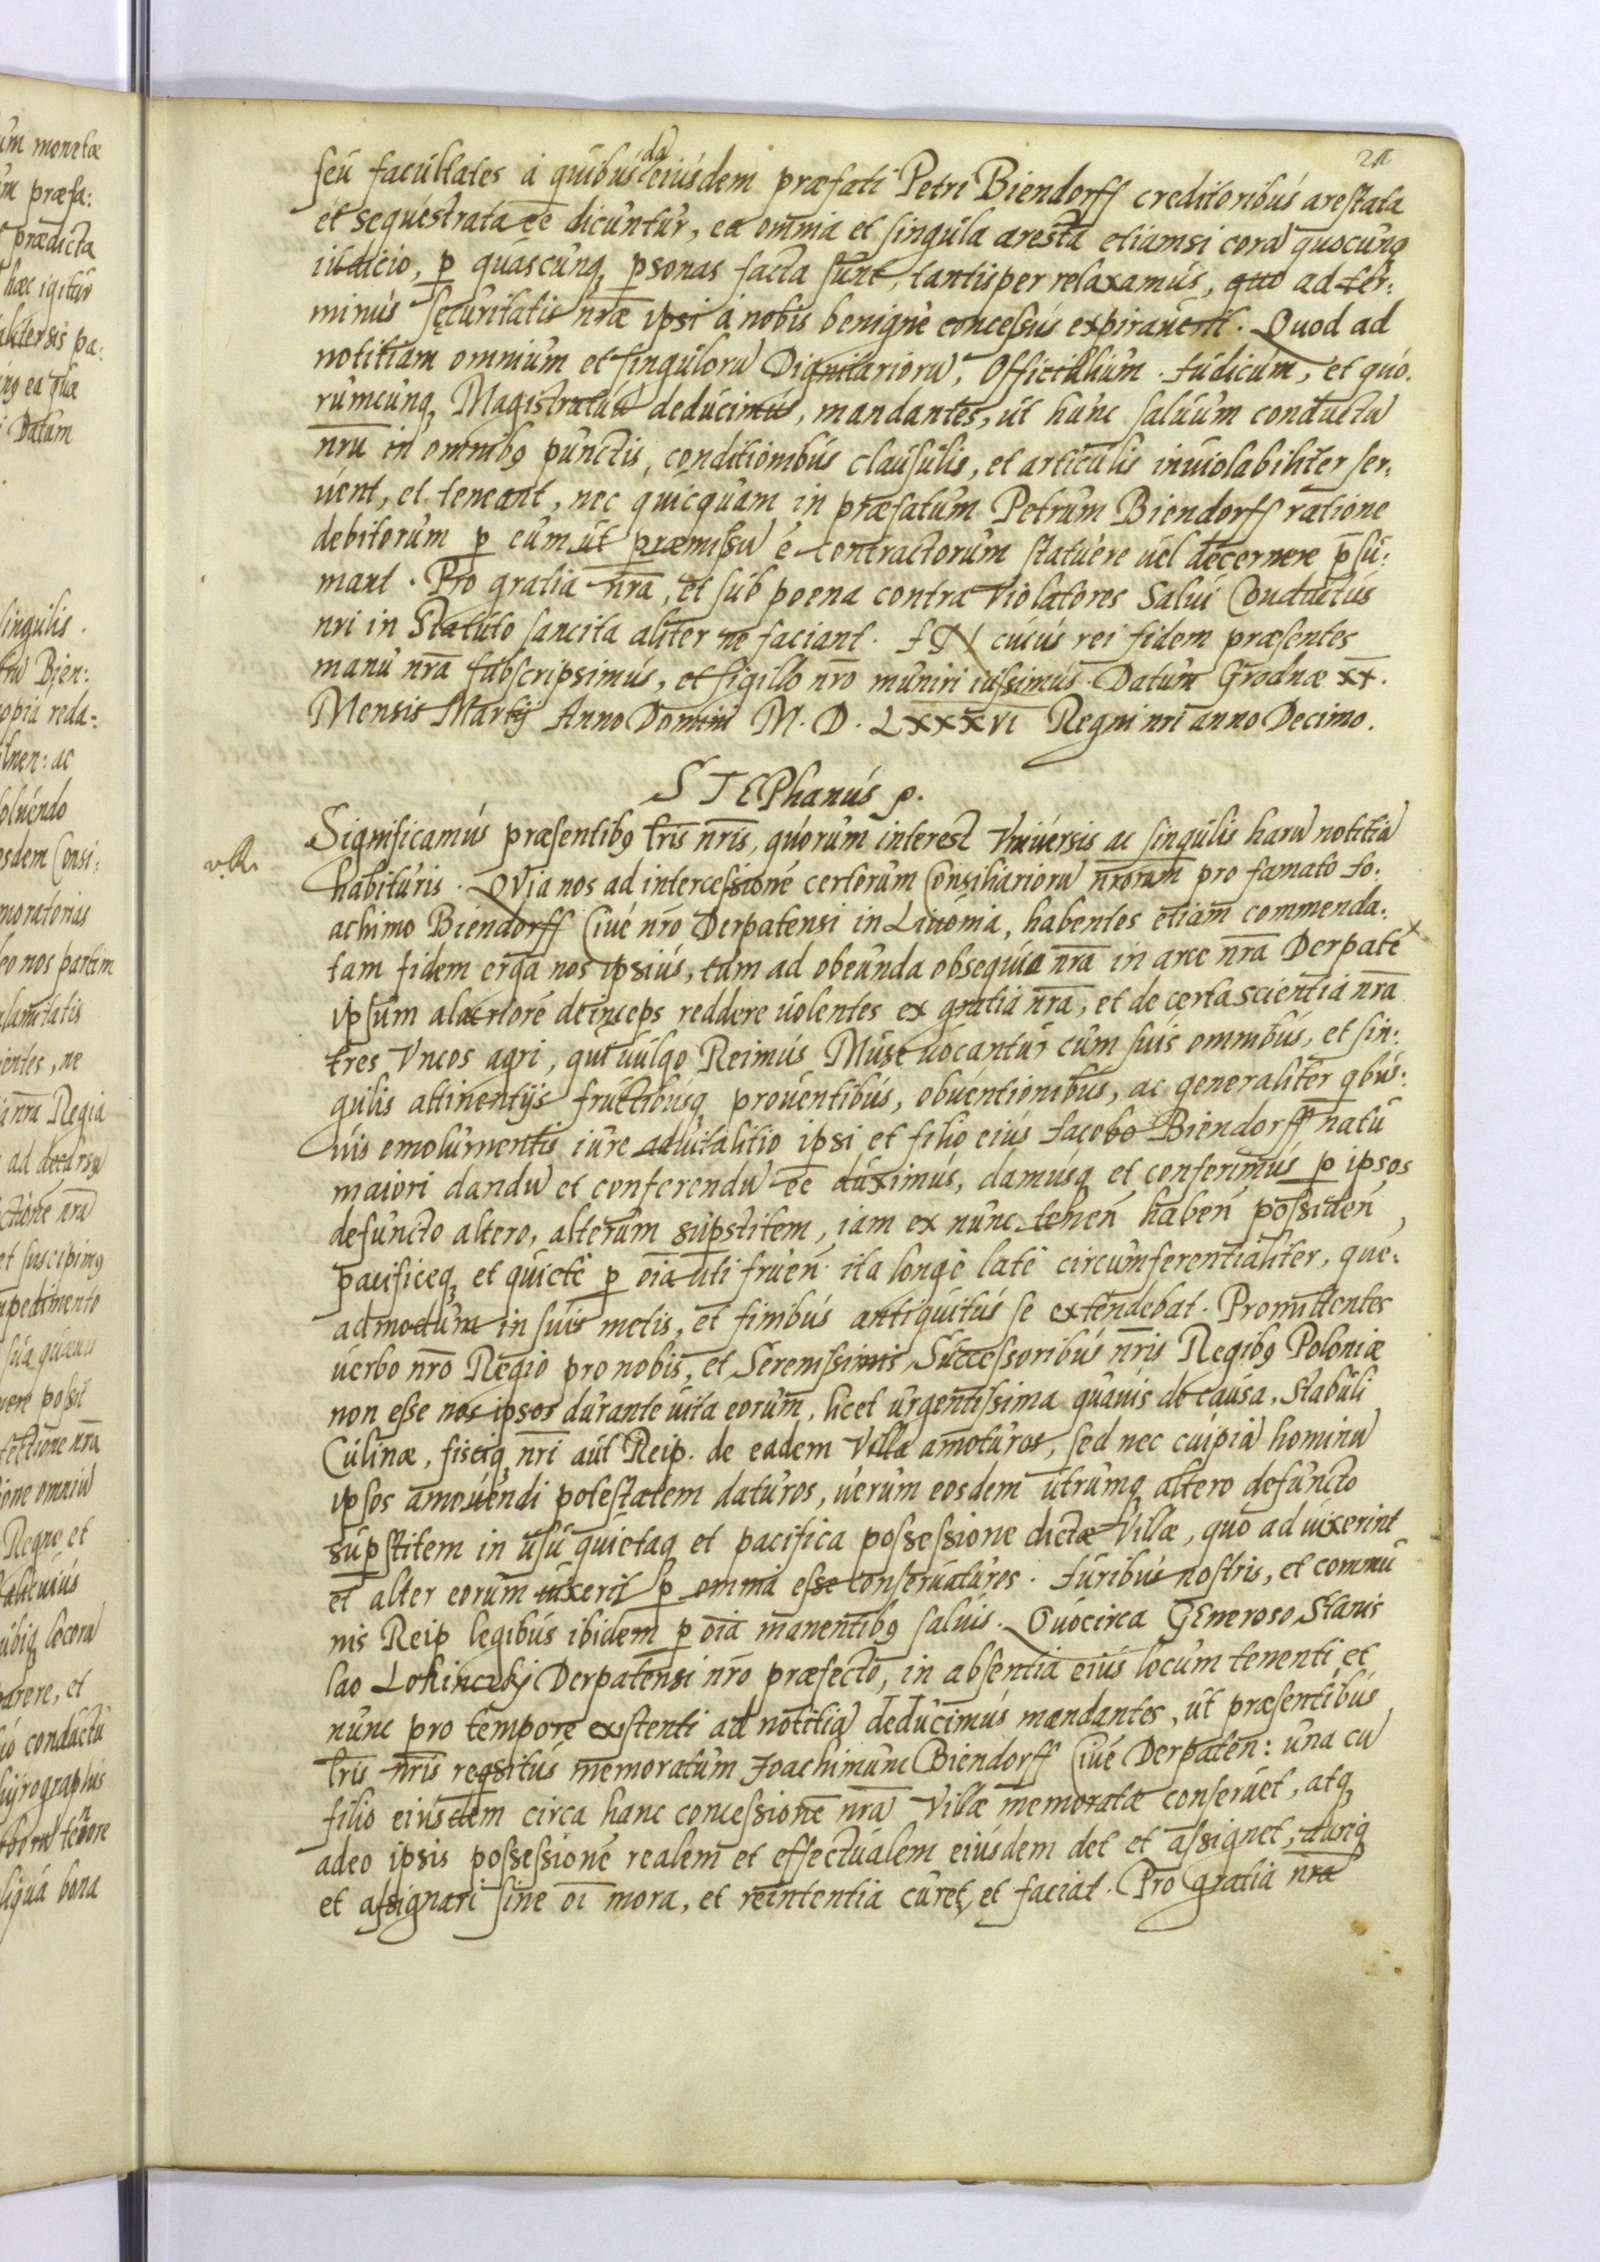 21
seu facultates à quibusda eiusdem præfati Petri Biendorff creditoribus arestata
et sequestrata ēē dicuntur, ea omnia et singula aresta etiamsi corā quocunq
iudicio, p quascunq psonas facta sunt, tantisper relaxamus, quo ad ter:
minus securitatis nr̄æ ipsi à nobis benigne concessus expirauerit. Quod ad
notitiam omnium et singulorū Dignitariorū, Officialium. Iudicum, et quo:
rumcunq Magistratuū deducimus, mandantes, ut hunc saluum conductū
nr̄u in omnibq punctis, conditionibus clausulis, et articulis inuiolabiliter ser:
uent, et teneant, nec quicquam in præfatum Petrum Biendorff ratione
debitorum p eum ut præmissū ē contractorum statuere uel decernere p̄su:
mant. Pro gratia nr̄a, et sub poena contra Violatores Salui Conductus
nri in Statuto sancita aliter ne faciant. IN cuius rei fidem præsentes
manu nr̄a subscripsimus, et sigillo nr̄o muniri iussimus. Datum Grodnæ xx.
Mensis Martij Anno Domini M. D. Lxxxvi Regni nri anno Decimo.
STEPhanus
Significamus præsentibq lr̄is nr̄is, quorum interest Vniuersis ac singulis harū notitiā
habituris. QVia nos ad intercessionē certorum Consiliariorū nr̄orum pro famato Io:
achimo Biendorff Ciue nr̄o Derpatensi in Liuonia, habentes etiam commenda:
tam fidem erga nos ipsius, tum ad obeunda obsequia nr̄a in arce nr̄a Derpatē
ipsum alacriorē deinceps reddere uolentes ex gratia nr̄a, et de certa scientia nr̄a
tres Vncos agri, qui uulgo Reimus Must uocantur cum suis omnibus, et sin:
gulis attinentijs fructibusq prouentibus, obuentionibus, ac generaliter qbus:
uis emolumentis iure aduitalitio ipsi et filio eius Iacobo Biendorff natu
maiori dandū et conferendū ēē duximus, damusq et conferimus p ipsos
defuncto altero, alterum supstitem, iam ex nunc tenen̄ haben̄ possiden̄,
pacificeq et quiete p oīa uti fruen̄ ita longè latè circumferentialiter, que:
admodum in suis metis, et finibus antiquitus se extendebat. Promittentes
uerbo nr̄o Regio pro nobis, et Serenissimis Successoribus nr̄is Regibq Poloniæ
non esse nos ipsos durante uita eorum, licet urgentissima quauis de causa, Stabuli
Culinæ, fisciq nr̄i aut Reip. de eadem Villa amoturos, sed nec cuipiā hominū
ipsos amouendi potestatem daturos, uerum eosdem utrumq altero defuncto
supstitem in usu quietaq et pacifica possessione dictæ Villæ, quo ad uixerint
et alter eorum uixerit p omnia esse conseruaturos. Iuribus nostris, et commu
nis Reip legibus ibidem p oīa manentibq saluis. Quocirca GEneroso Stanis
lao Lokinczkj Derpatensi nr̄o præfecto, in absentia eius locum tenenti et
nunc pro tempore existenti ad notitiā deducimus mandantes, ut præsentibus
lr̄is nr̄is reqsitus memoratum Joachimum Biendorff Ciuē Derpaten: una cū
filio eiusdem circa hanc concessionē nr̄ā Villæ memoratæ conseruet, atq
adeo ipsis possessionē realem et effectualem eiusdem det et assignet, dariq
et assignari sine oī mora, et reintentia curet, et faciat. Pro gratia nr̄a